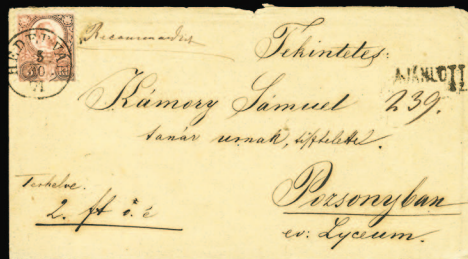 HEDERVÁR
5
30
71
Recommandirt
Tekintetes
AJÁNLOTT
Kámory Sámuel 239.
tanár urnak, tisztelettel.
Terhelve.
2. ft ö. é
Pozsonyban
ev: Lyceum.